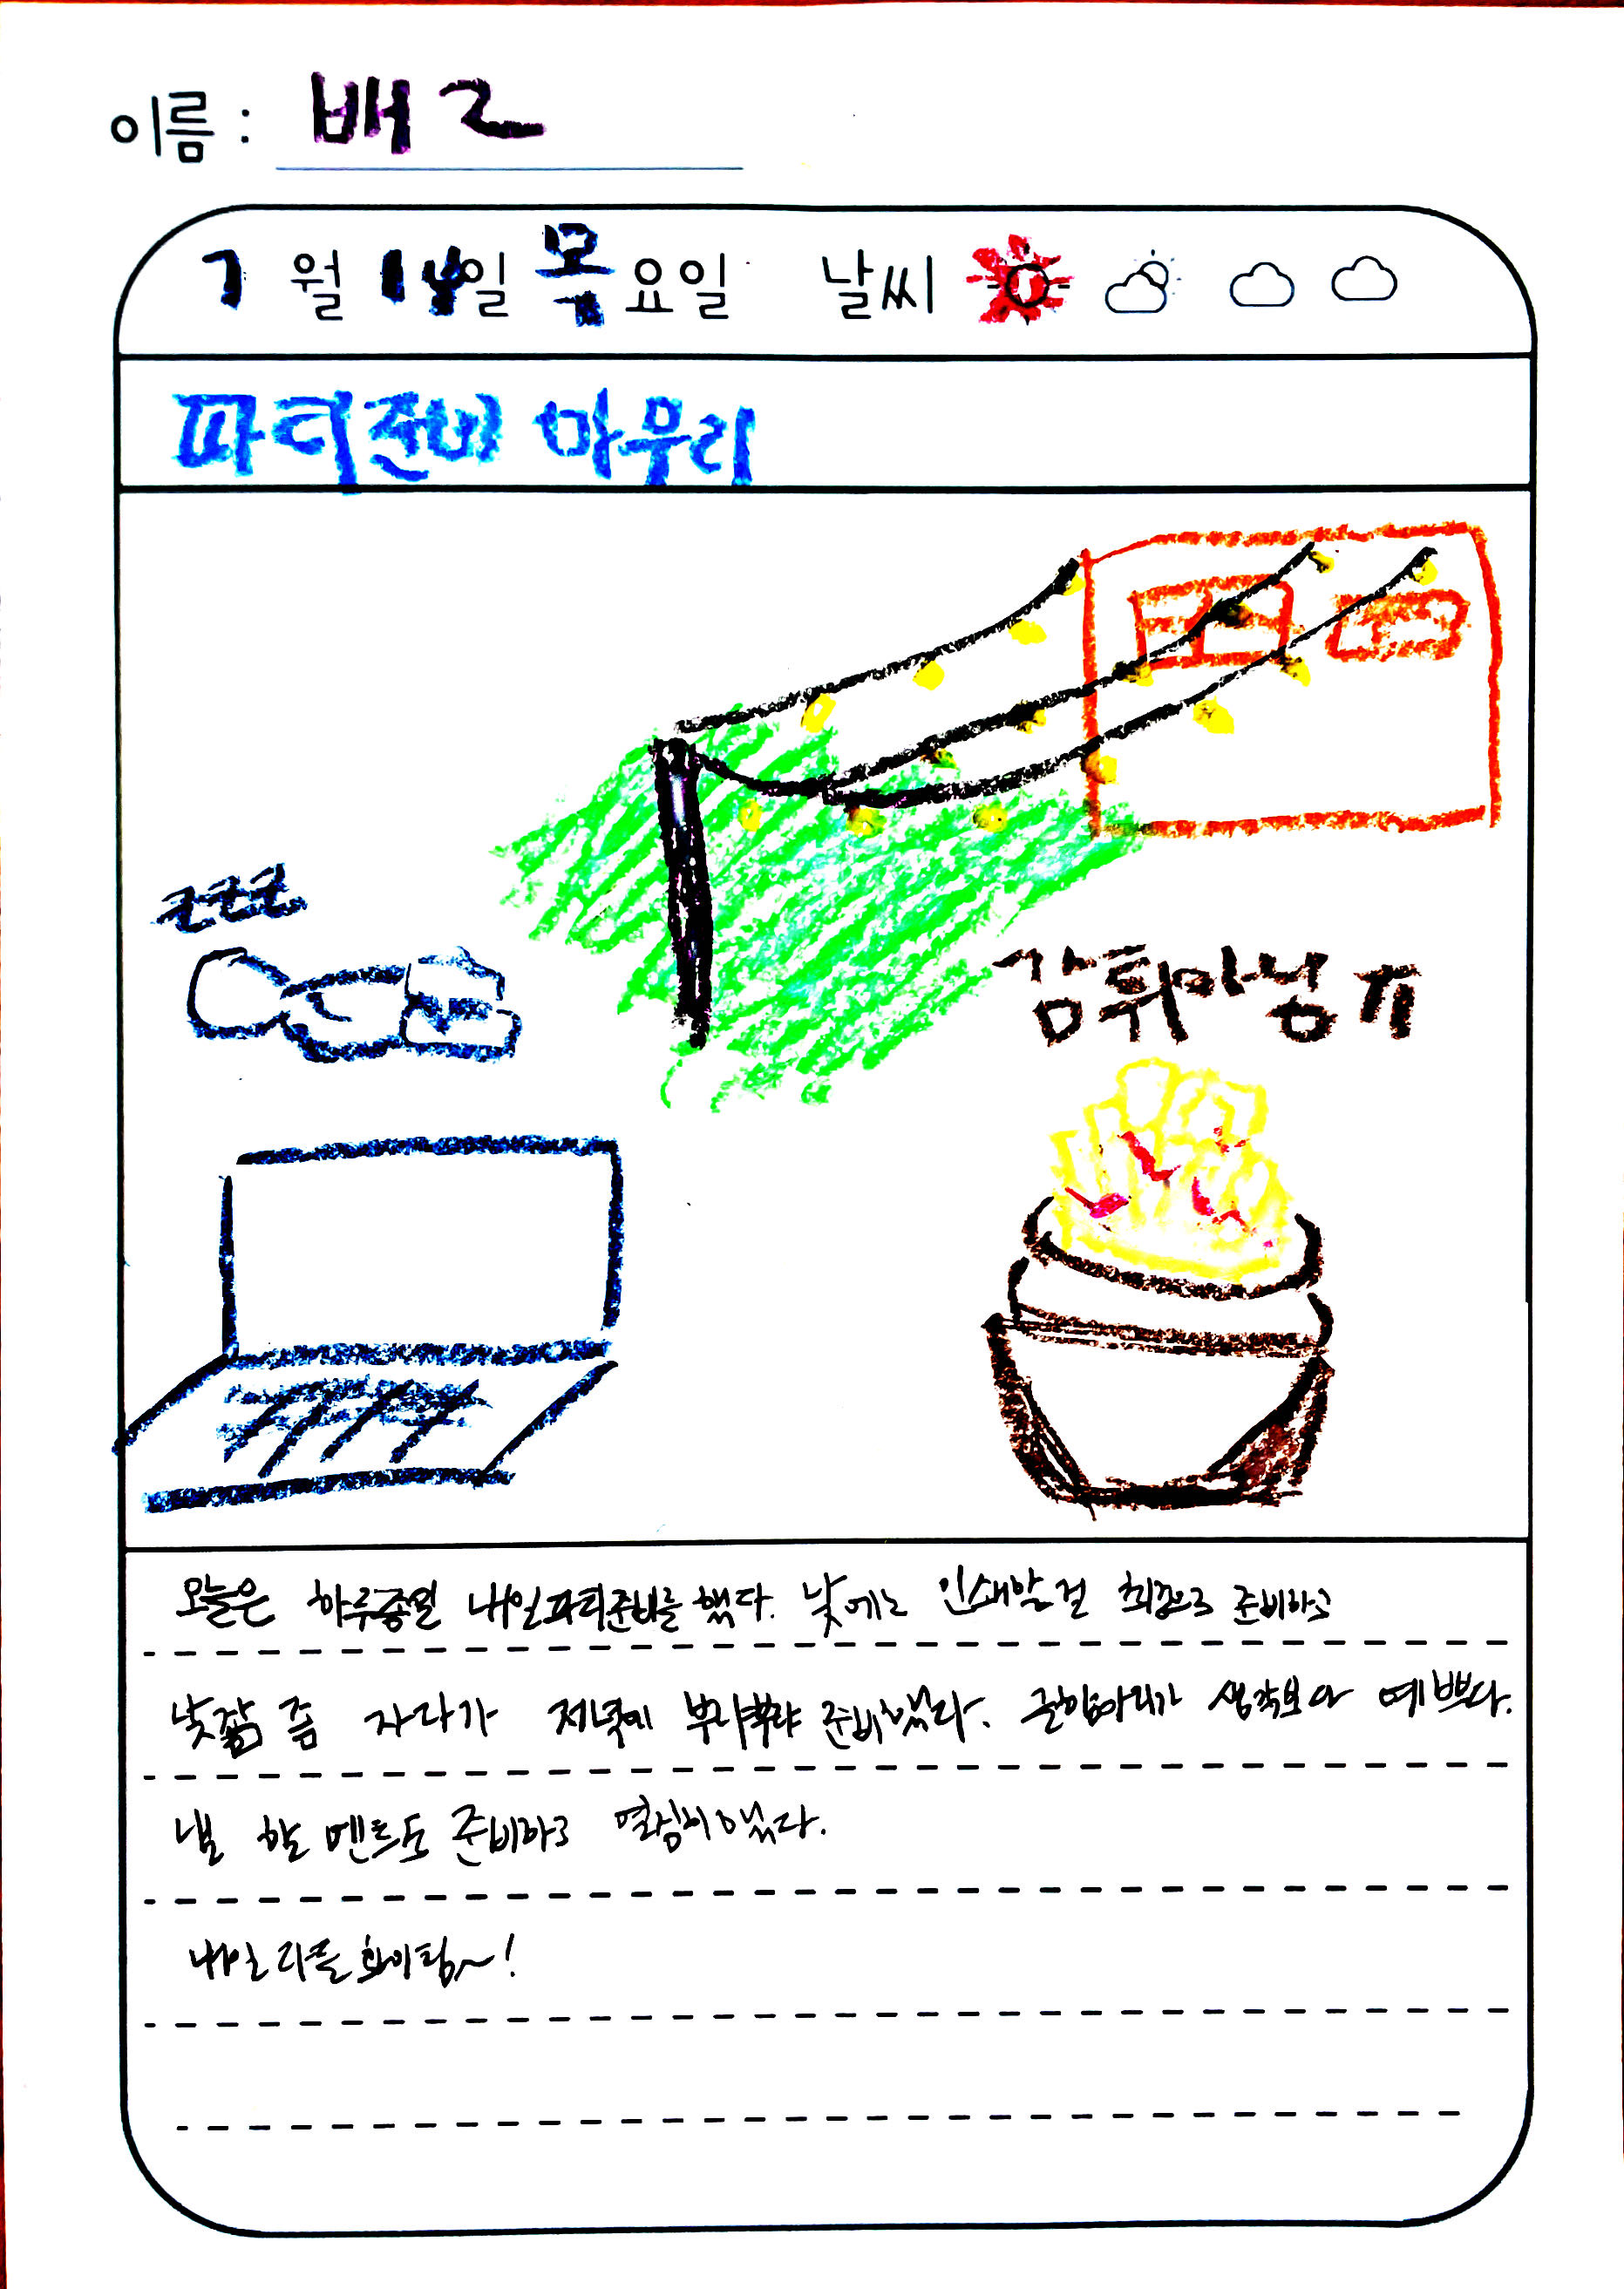 이름 : 배ㄹ
7 월 14일 목요일 날씨
파티준비 마무리
zzz
감튀마넝ㅠ
오늘은 하루종일 내일파티준비를 했다. 낮에는 인쇄할 걸 최종으로 준비하고
낮잠 좀 자다가 저녁에 부랴부랴 준비했다. 생각보다 예쁘다.
낼 할 멘트도 준비하고 열심히했다.
내일 다들 화이팅~!